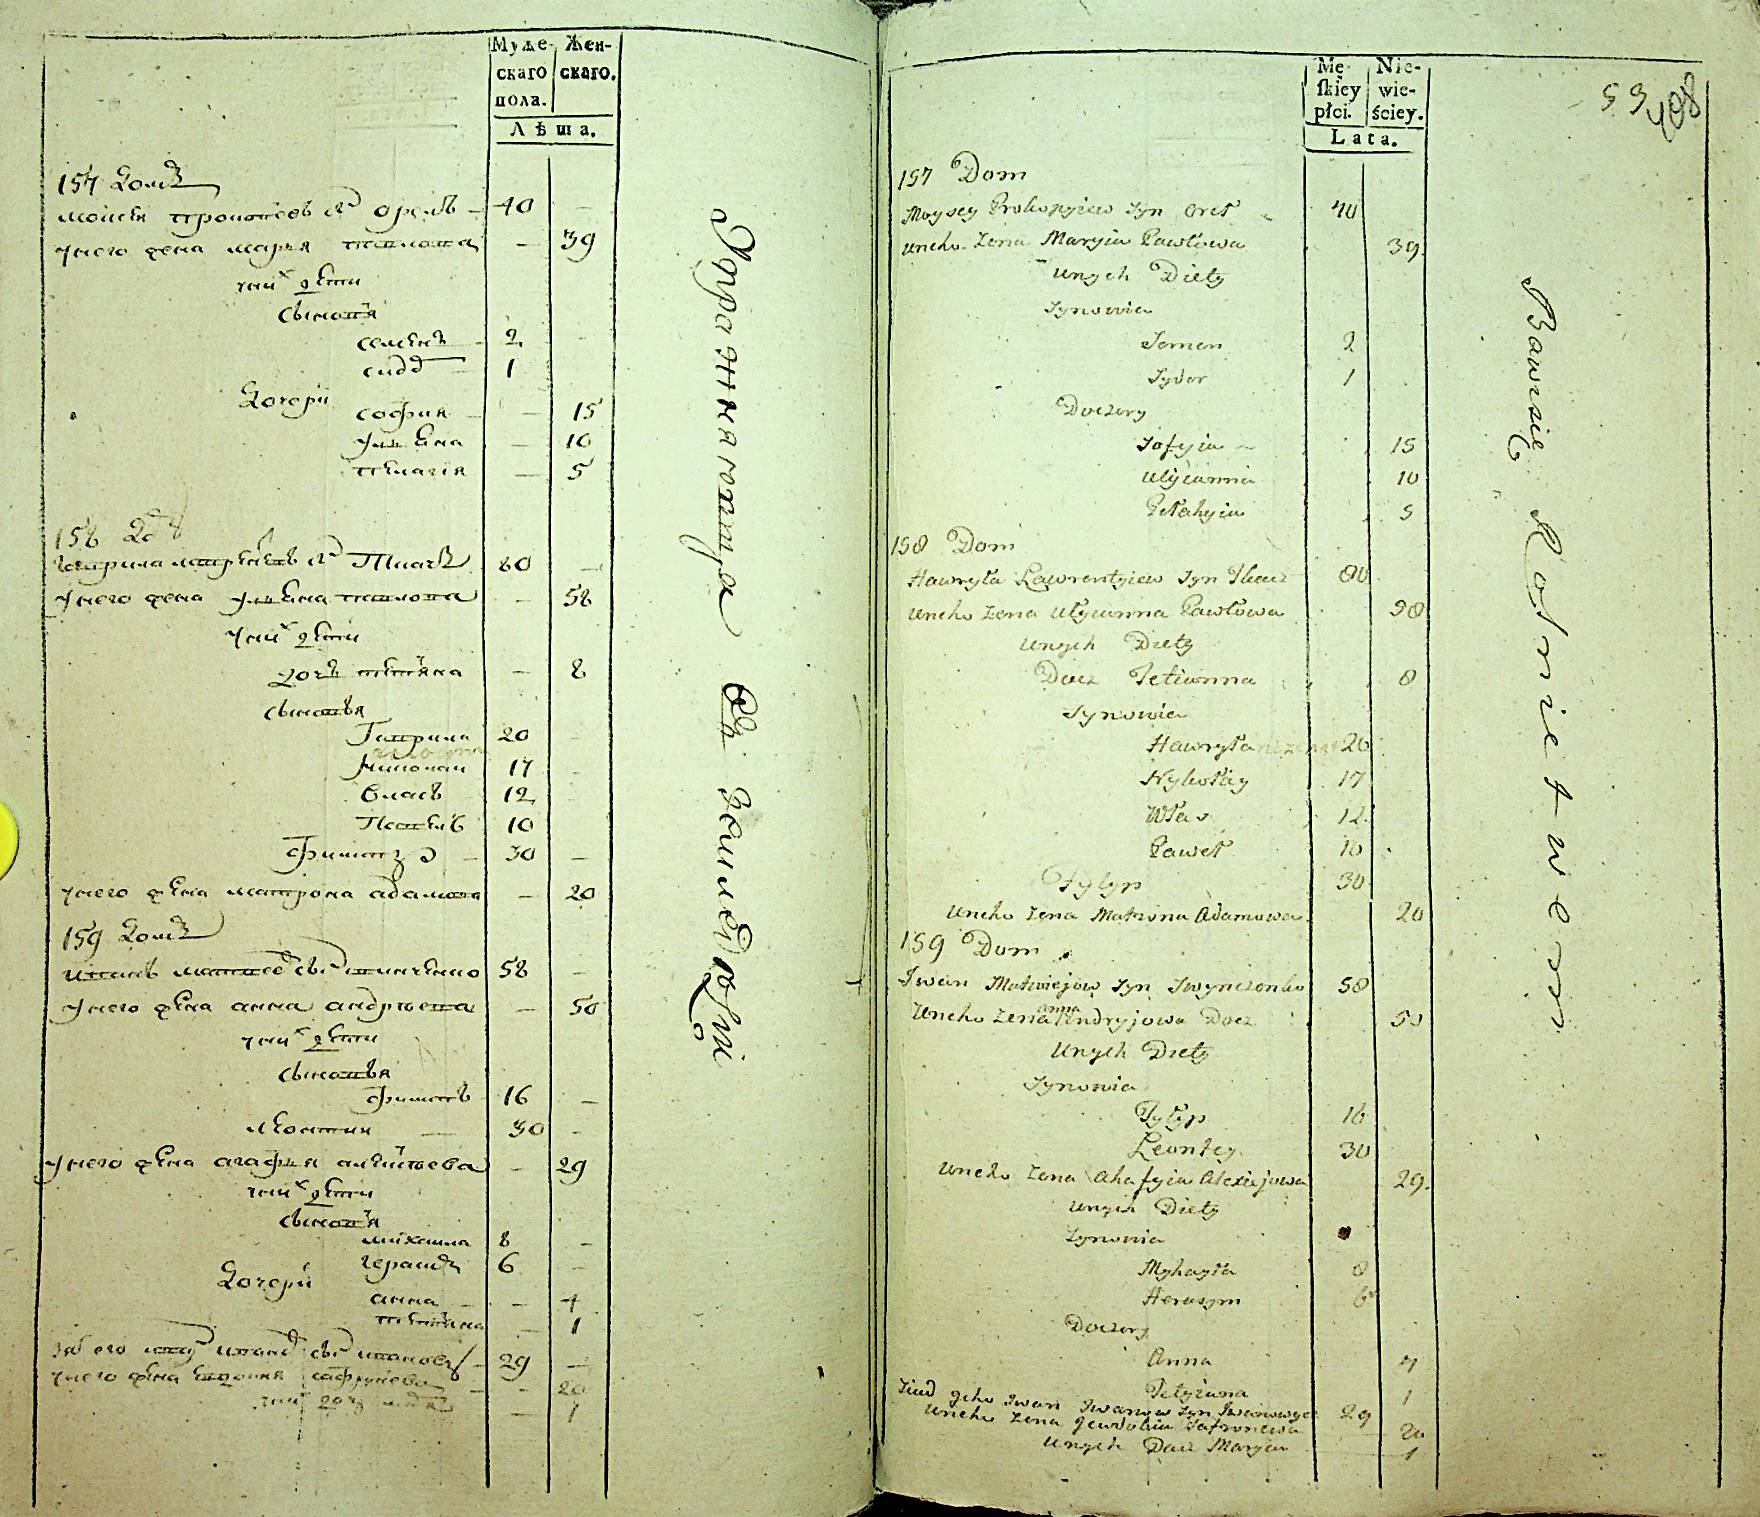 Муже-
скаго
пола.
Жен-
скаго.
Лѣта.
157 Домъ
Мойсей Прокопіевъ сынъ Орелъ 40
Унего жена Марья Павлова 39
Унихъ дѣти
Сыновья
Семенъ 2
Сидоръ 1
Дочери
София 15
Ульяна 10
Пелагія 5
158 Домъ
Гаврила Лаврентіевъ сынъ Ткачъ 80
Унего жена Ульяна Павлова 58
Унихъ дѣти
Дочь Тетіяна 8
Сыновья
Гаврила 20
Николай 17
Власъ 12
Павелъ 10
Филипъ 30
Унего жена Матрона Адамова 20
159 Домъ
Иванъ Матвеевъ сынъ
58
Унего жена Анна Андрѣева 50
Унихъ дѣти
Сыновья
Филипъ 16
Леонтій 30
Унего жена Агафья Алексѣева 29
Унихъ дѣти
Сыновья
Михайла 8
Герасимъ 6
Дочери
Анна 4
Тетіяна 1
его Иванъ Ивановъ сынъ 29
Унего жена Евдокия Сафронова 20
Унихъ дочь 1
Упражняющся Въ Земледѣлїи
Mę-
skiey
płci.
Nie-
wie-
ściey.
Lata.
53
408
157 Dom
Moysey Prokopyiew Syn Oreł 40
Uneho Zena Maryia Pawłowa 39
Unych Diety
Synowia
Semen 2
Sydor 1
Doczery
Sofyia 15
Ulyianna 10
Pełahyia 5
158 Dom
Hawryła Ławrentyiew Syn Tkacz 80
Uneho Zena Ulyianna Pawłowa 58
Unych Diety
Docz Tetianna 8
Synowia
Hawryła 20
Nykołay 17
Włas 12
Paweł 10
Fylyp 30
Uneho Zena Matrona Adamowa 20
159 Dom
Iwan Matwiejow Syn Iwynczenko 58
Uneho Zena Anna Andryjowa Docz 50
Unych Diety
Synowia
Fylyp 16
Leontey 30
Uneho Zena Ahafyia Alexiejowa 29
Unych Diety
Synowia
Myhayła 8
Herasym 6
Doczery
Anna 4
Tetyiana 1
jeho Iwan Iwanow Syn 29
Uneho Zena Jewdokia Safronowa 20
Unych Docz Marya 1
Bawrsię Rolnictwem